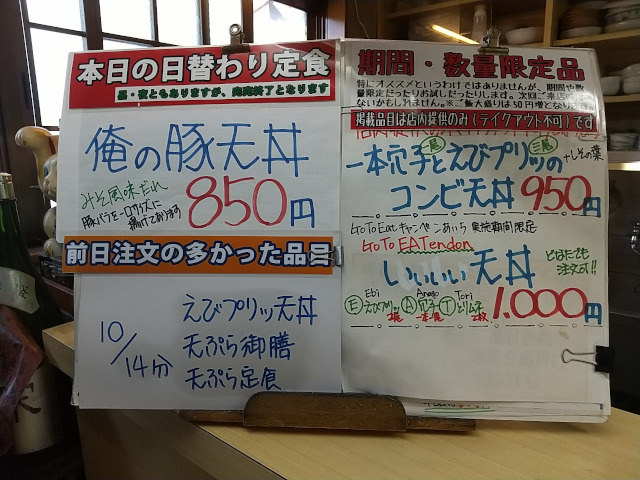 本日の日替わり定食
昼・夜ともありますが、完売終了となります
俺の豚天丼
みそ風味だれ
豚バラを一口サイズに
揚げております
850円
前日注文の多かった品目
10/14分
えびプリッ天丼
天ぷら御膳
天ぷら定食
期間・数量限定品
特にオススメというわけではありませんが、期間や数
量限定だったりお試しだったりします。次回ご来店時
ないかもしれません。※ご飯大盛りは50円増となります
掲載品目は店内提供のみ(テイクアウト不可)です
一本穴子と二尾えびプリッの三尾+しその葉
コンビ天丼 950円
GoTo Eatキャンペーンあいち 実施期間限定
GoTo EATendon
いいいい天丼
どなたでも
注文可!!
Ebi Anago Tori
Ⓔえびプリッ Ⓐ穴子 Ⓣとりムネ
一本 2枚
1.000円